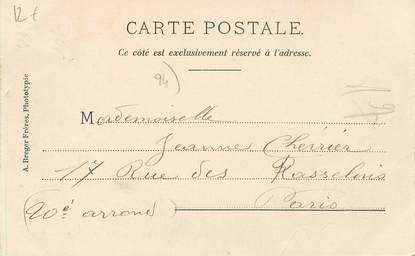 12 €
CARTE POSTALE.
Ce côté est exclusivement réservé à l'adresse.
94)
A. Breger Frères, Phototypie
Mademoiselle
Jeanne Chérrier
17 Rue des Rasselins
Paris
(20é arrond)